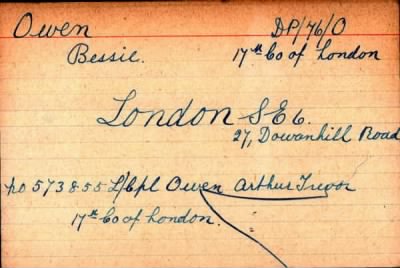 Owen DP/76/O
Bessie. 17th Co of London
London SE6.
27, Dowanhill Road
No 573855 L/Cpl Owen Arthur Trevor
17th Co of London.